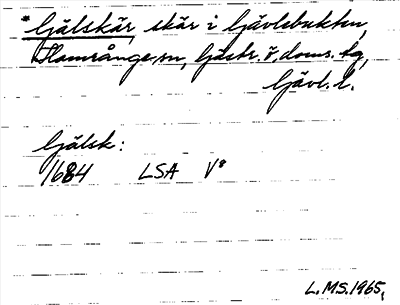 *Gjälskär, skär i Gjävlebukten,
Hamrånge sn, Gästr. ö. doms. tg,
Gävl. l.
Gjälsk:
1684 LSA V⁸
L.MS.1965,